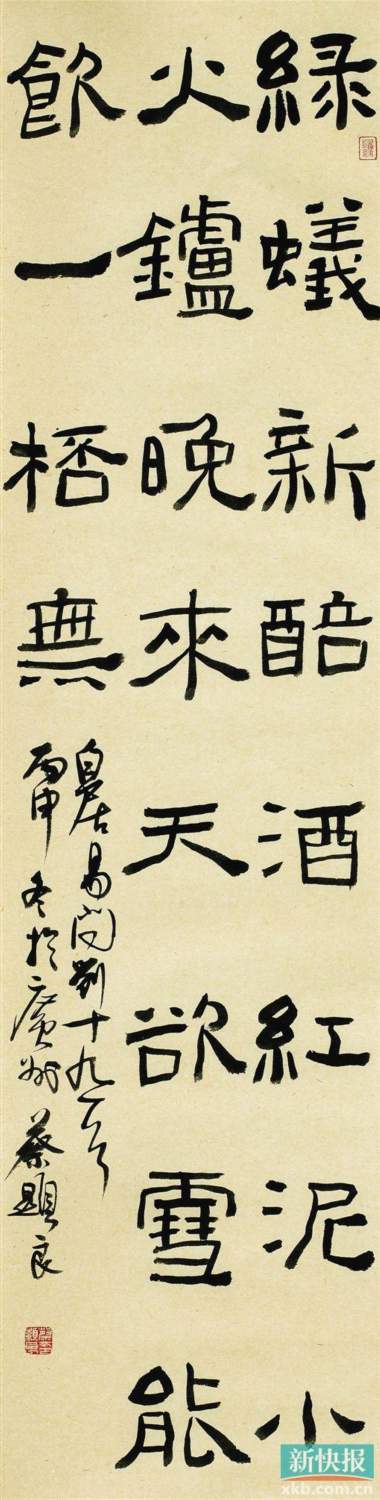 緑蟻新醅酒紅泥小
火鑪晚來天欲雪能
飲一桮無
白居易问劉十九一首
丙申冬於廣州蔡顯良
新快报
xkb.com.cn